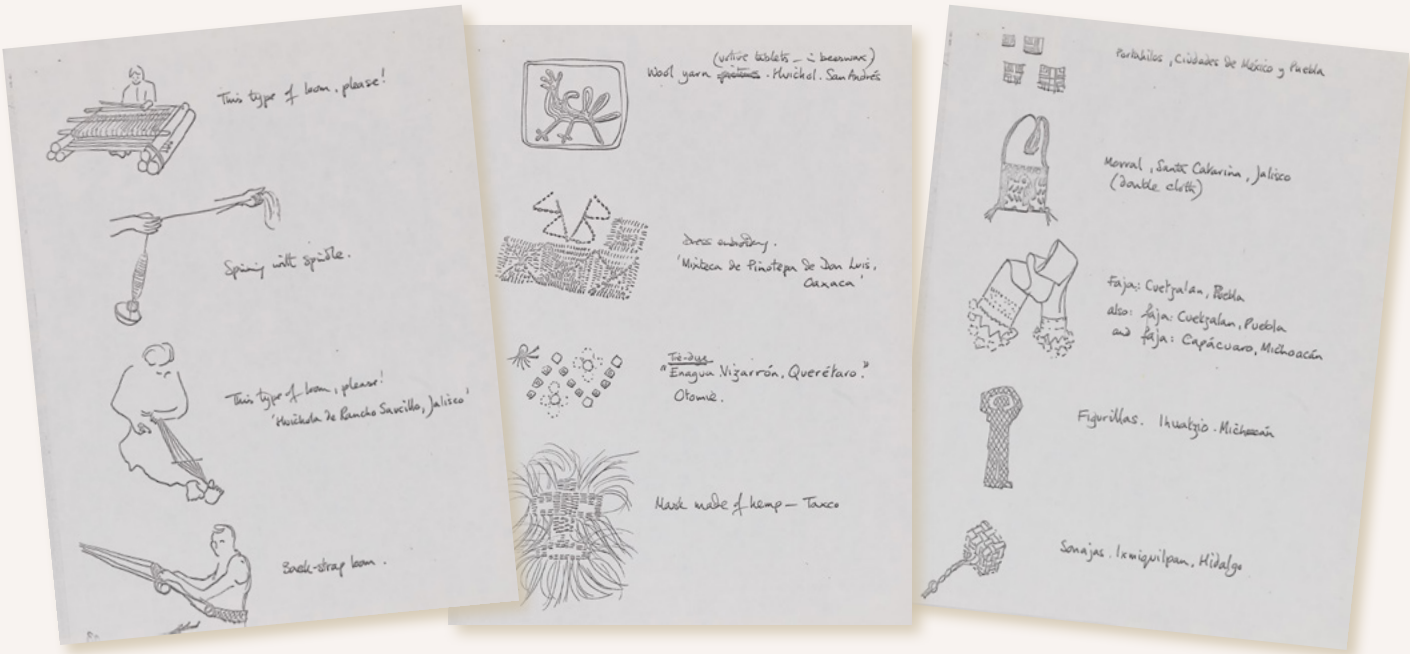 This type of loom, please!
Spinning with spindle.
This type of loom, please!
'Huichola de Rancho Saucillo, Jalisco'
Back-strap loom.
(votive tablets — in beeswax)
Wool yarn pictures. Huichol. San Andrés
dress embroidery.
'Mixteca de Pinotepa de Don Luis,
Oaxaca'
Tie-dye
"Enagua Vizarrón, Querétaro."
Otomie.
Mask made of hemp — Taxco
Portahilos, Ciudades de México y Puebla
Morral, Santa Catarina, Jalisco
(double cloth)
Faja: Cuetzalan, Puebla
also: faja: Cuetzalan, Puebla
and faja: Capácuaro, Michoacán
Figurillas. Ihuatzio. Michoacán
Sonajas. Ixmiquilpan, Hidalgo